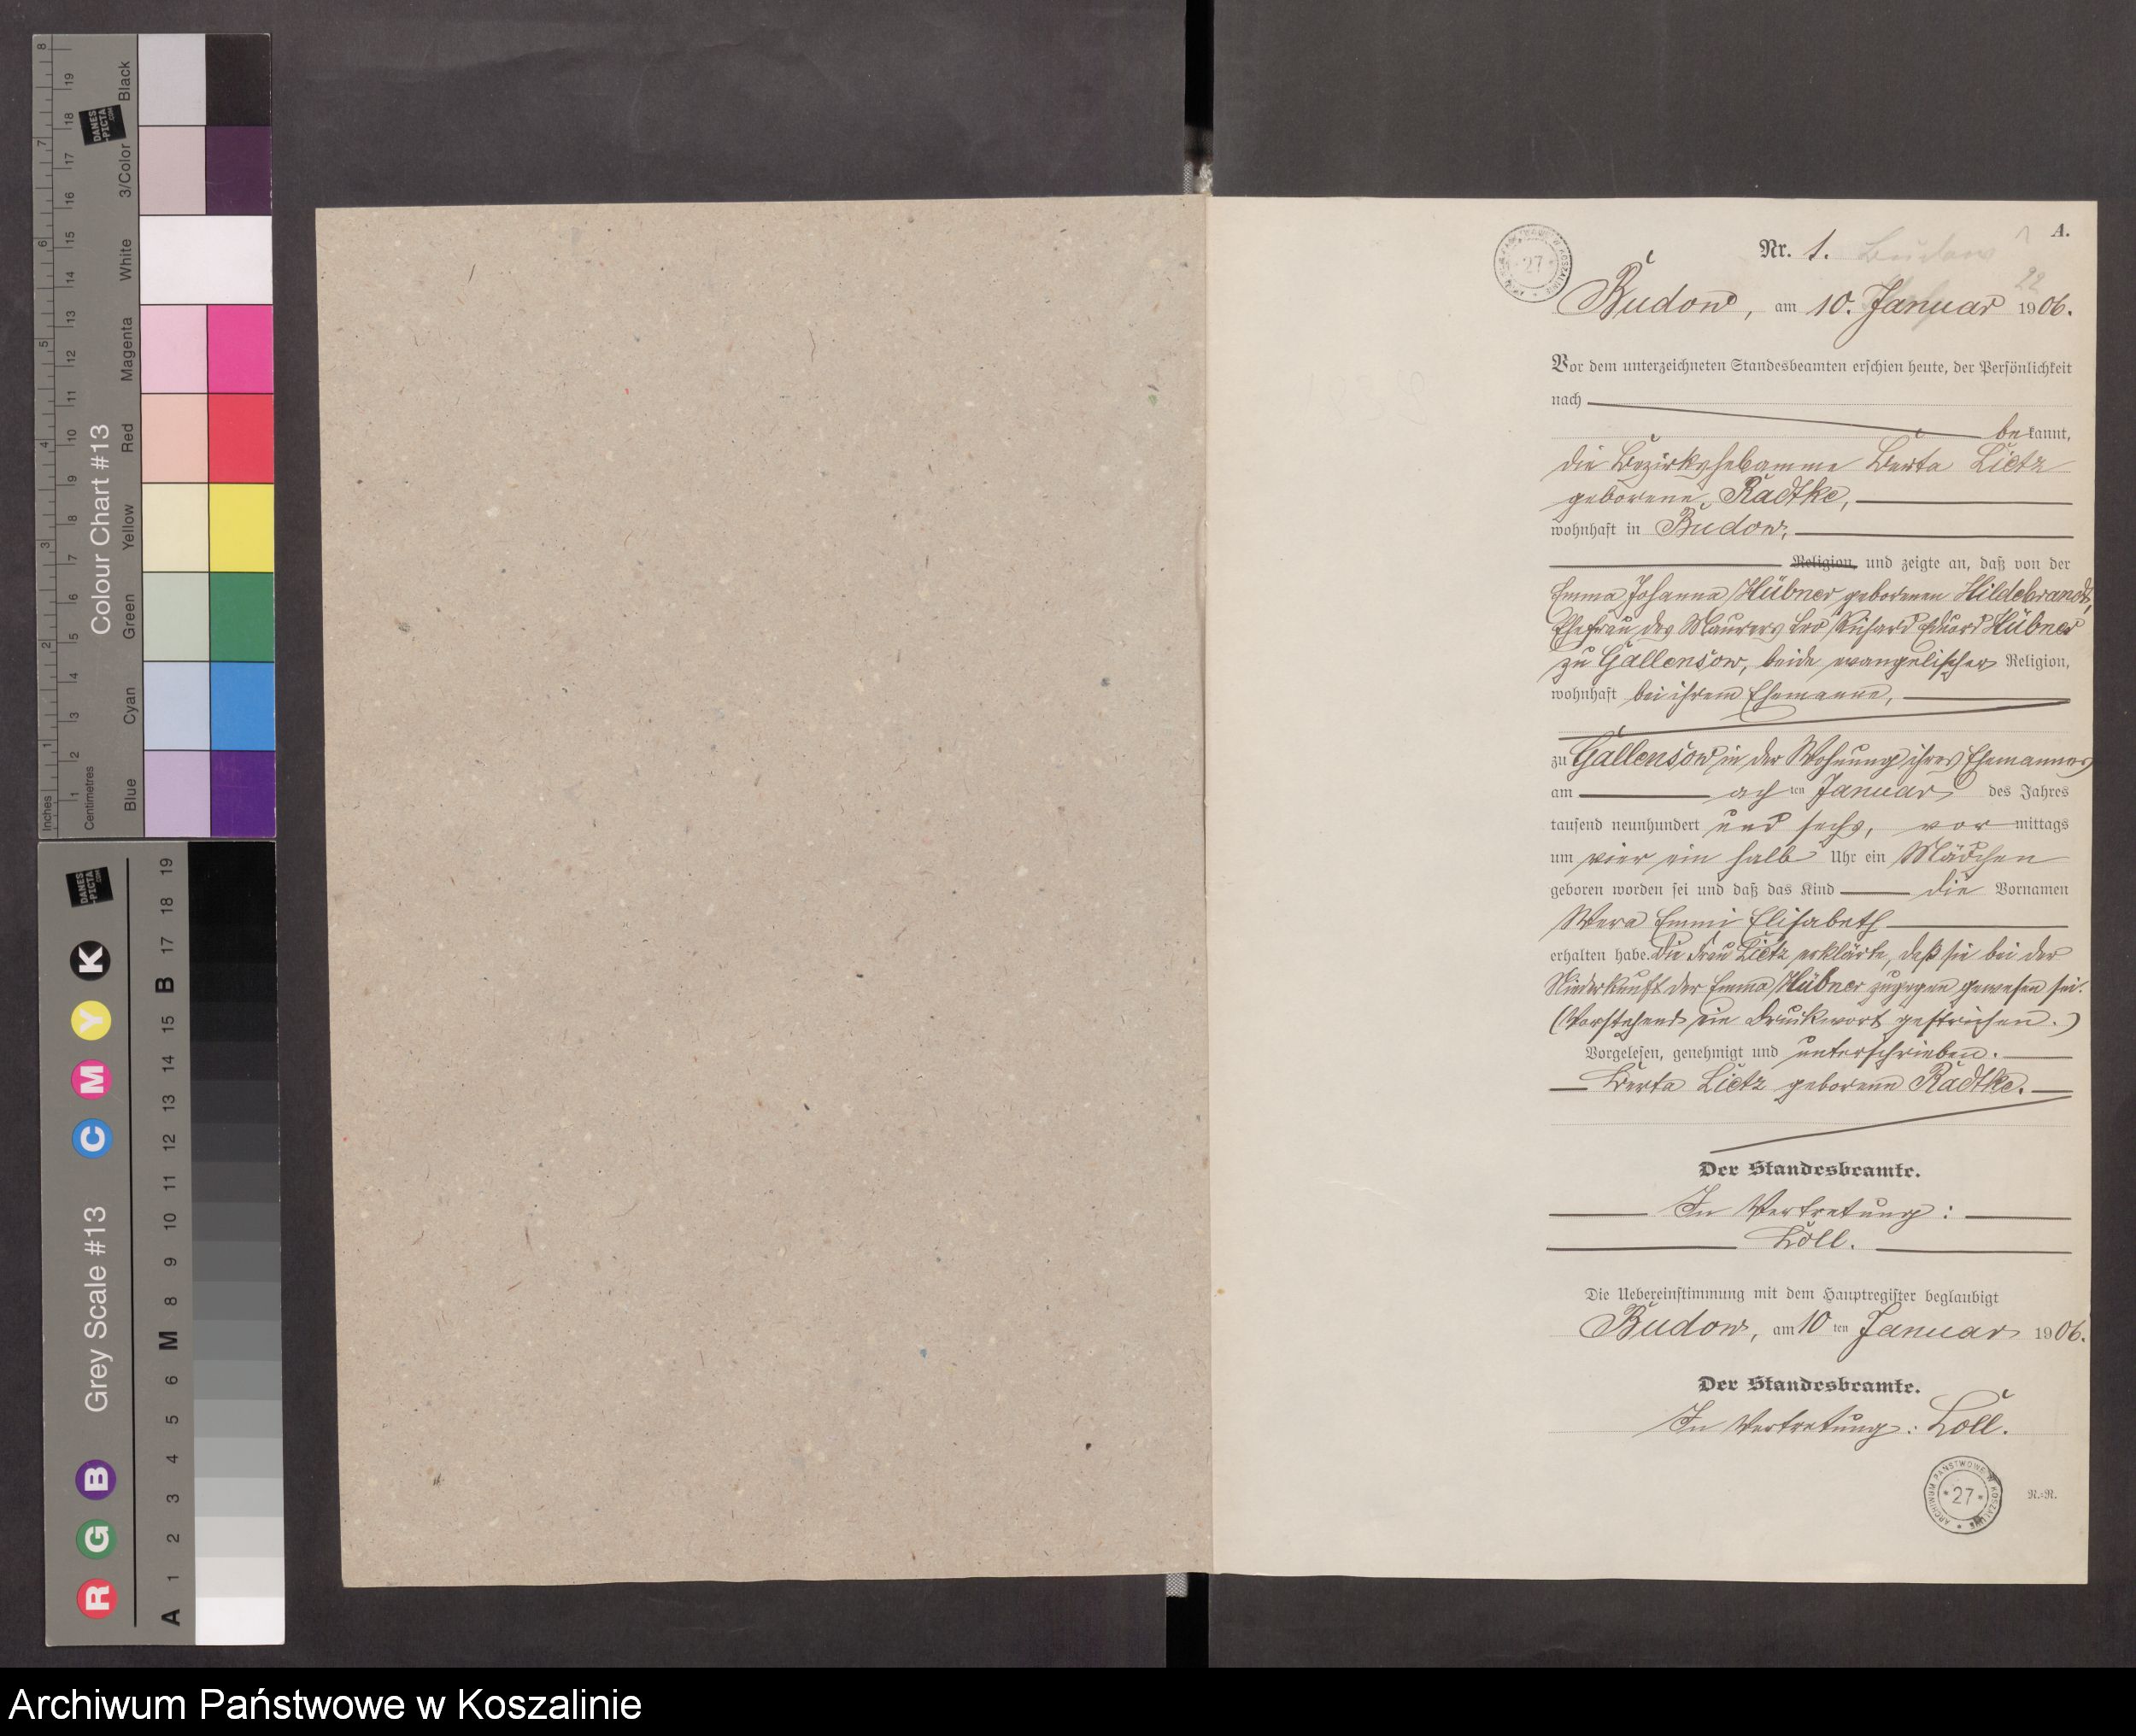 A.
Nr. 1.
Budow, am 10. Januar 1906.
Vor dem unterzeichneten Standesbeamten erschien heute, der Persönlichkeit
nach
bekannt,
die Bezirkshebamme Berta Lietz
geborene Radtke,
wohnhaft in Budow,
Religion, und zeigte an, daß von der
Emma Johanna Hübner geborenen Hildebrandt,
Ehefrau des Maurers Leo Richard Eduard Hübner
zu Gallensow, beide evangelischer Religion,
wohnhaft bei ihrem Ehemanne,
zu Gallensow in der Wohnung ihres Ehemannes
am achten Januar des Jahres
tausend neunhundert und sechs, vormittags
um vier ein halb Uhr ein Mädchen
geboren worden sei und daß das Kind die Vornamen
Wera Emmi Elisabeth
erhalten habe. Die Frau Lietz erklärte, daß sie bei der
Niederkunft der Emma Hübner zugegen gewesen sei.
(Vorstehend ein Druckwort gestrichen.)
Vorgelesen, genehmigt und unterschrieben.
Berta Lietz geborene Radtke.
Der Standesbeamte.
In Vertretung:
Löll.
Die Uebereinstimmung mit dem Hauptregister beglaubigt
Budow, am 10ten Januar 1906.
Der Standesbeamte.
In Vertretung: Loll.
ARCHIWUM PAŃSTWOWE W KOSZALINIE
* 27 *
R.=R.
Inches
1 2 3 4 5 6 7 8
Centimetres
1 2 3 4 5 6 7 8 9 10 11 12 13 14 15 16 17 18 19
Colour Chart #13
Blue Cyan Green Yellow Red Magenta White 3/Color Black
DANES
-PICTA
.COM
Grey Scale #13
R G B C M Y K
A 1 2 3 4 5 6 M 8 9 10 11 12 13 14 15 B 17 18 19
DANES
-PICTA
.COM
Archiwum Państwowe w Koszalinie